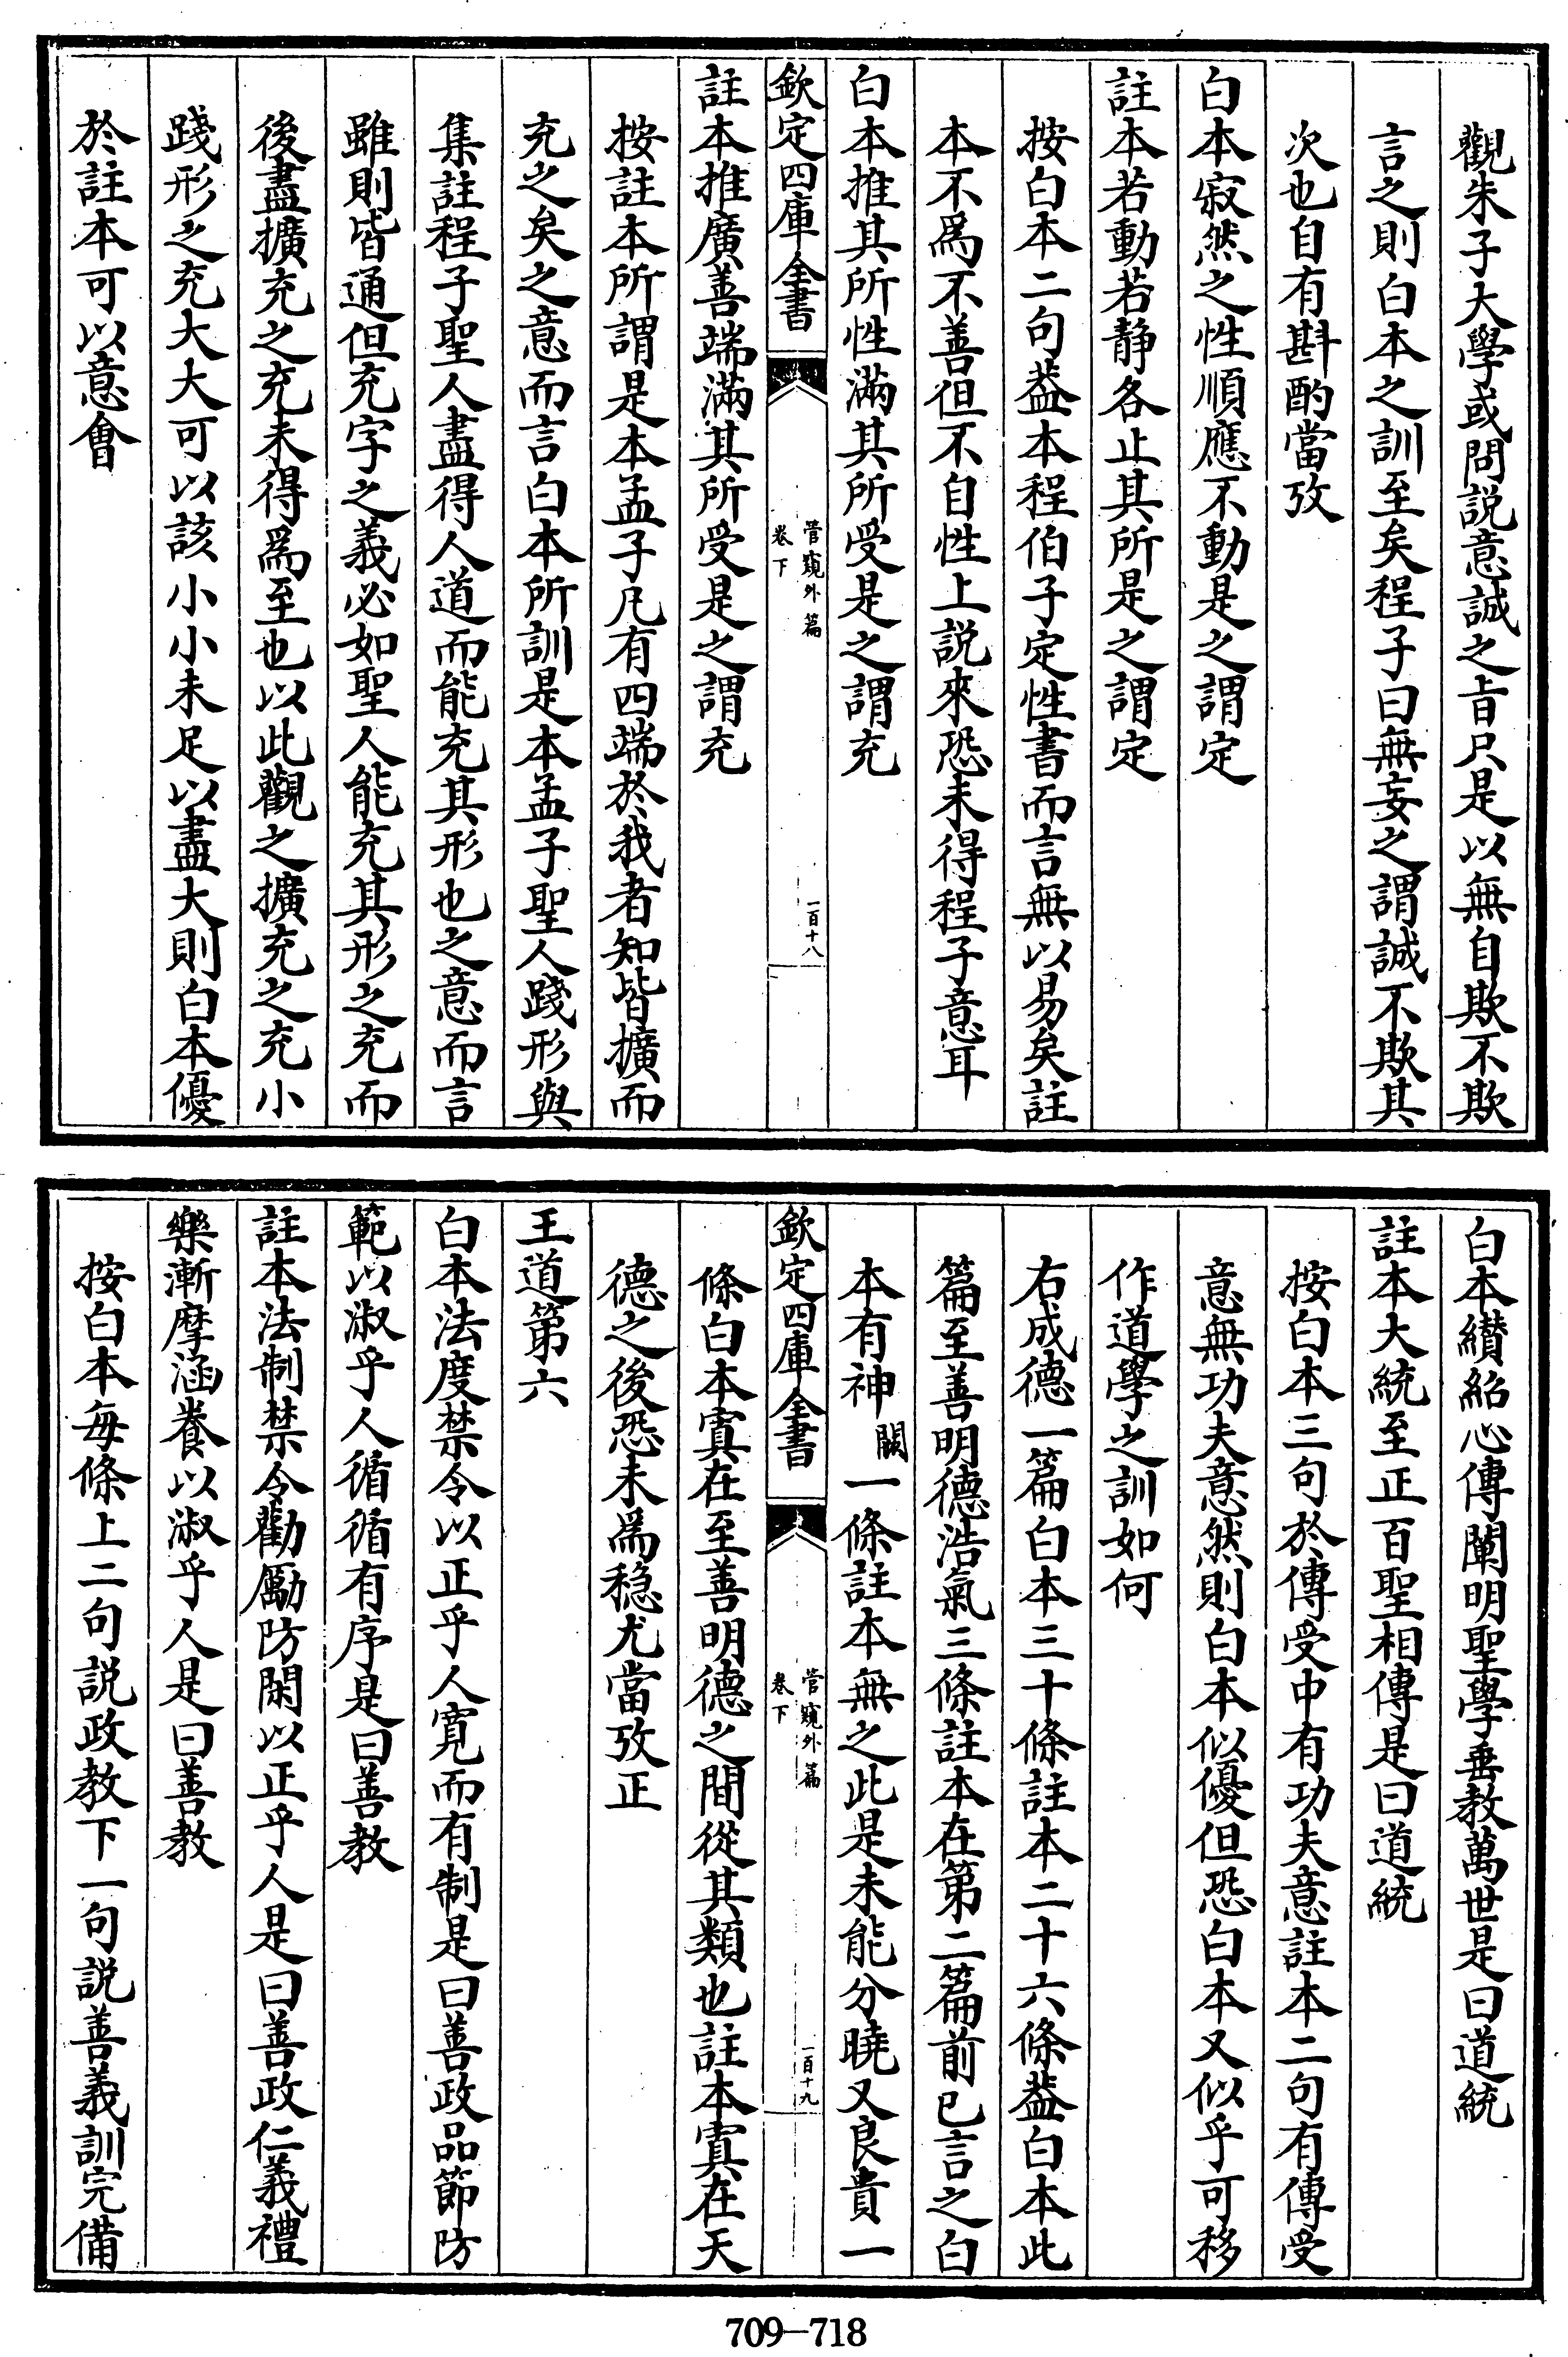 觀朱子大學或問説意誠之㫖只是以無自欺不欺
言之則白本之訓至矣程子曰無妄之謂誠不欺其
次也自有斟酌當攷
白本寂然之性順應不動是之謂定
註本若動若静各止其所是之謂定
按白本二句葢本程伯子定性書而言無以易矣註
本不爲不善但不自性上説來恐未得程子意耳
白本推其所性滿其所受是之謂充
欽定四庫全書
管窺外篇
卷下
一百十八
註本推廣善端滿其所受是之謂充
按註本所謂是本孟子凡有四端於我者知皆擴而
充之矣之意而言白本所訓是本孟子聖人踐形與
集註程子聖人盡得人道而能充其形也之意而言
雖則皆通但充字之義必如聖人能充其形之充而
後盡擴充之充未得爲至也以此觀之擴充之充小
踐形之充大大可以該小小未足以盡大則白本優
於註本可以意會
白本纉紹心傳闡明聖學垂教萬世是曰道統
註本大統至正百聖相傳是曰道統
按白本三句於傳受中有功夫意註本二句有傳受
意無功夫意然則白本似優但恐白本又似乎可移
作道學之訓如何
右成德一篇白本三十條註本二十六條葢白本此
篇至善明德浩氣三條註本在第二篇前已言之白
本有神闕一條註本無之此是未能分曉又良貴一
欽定四庫全書
管窺外篇
卷下
一百十九
條白本寘在至善明德之間從其類也註本寘在天
德之後恐未爲穏尤當攷正
王道第六
白本法度禁令以正乎人寛而有制是曰善政品節防
範以淑乎人循循有序是曰善教
註本法制禁令勸勵防閑以正乎人是曰善政仁義禮
樂漸摩涵養以淑乎人是曰善教
按白本每條上二句説政教下一句説善義訓完備
709—718